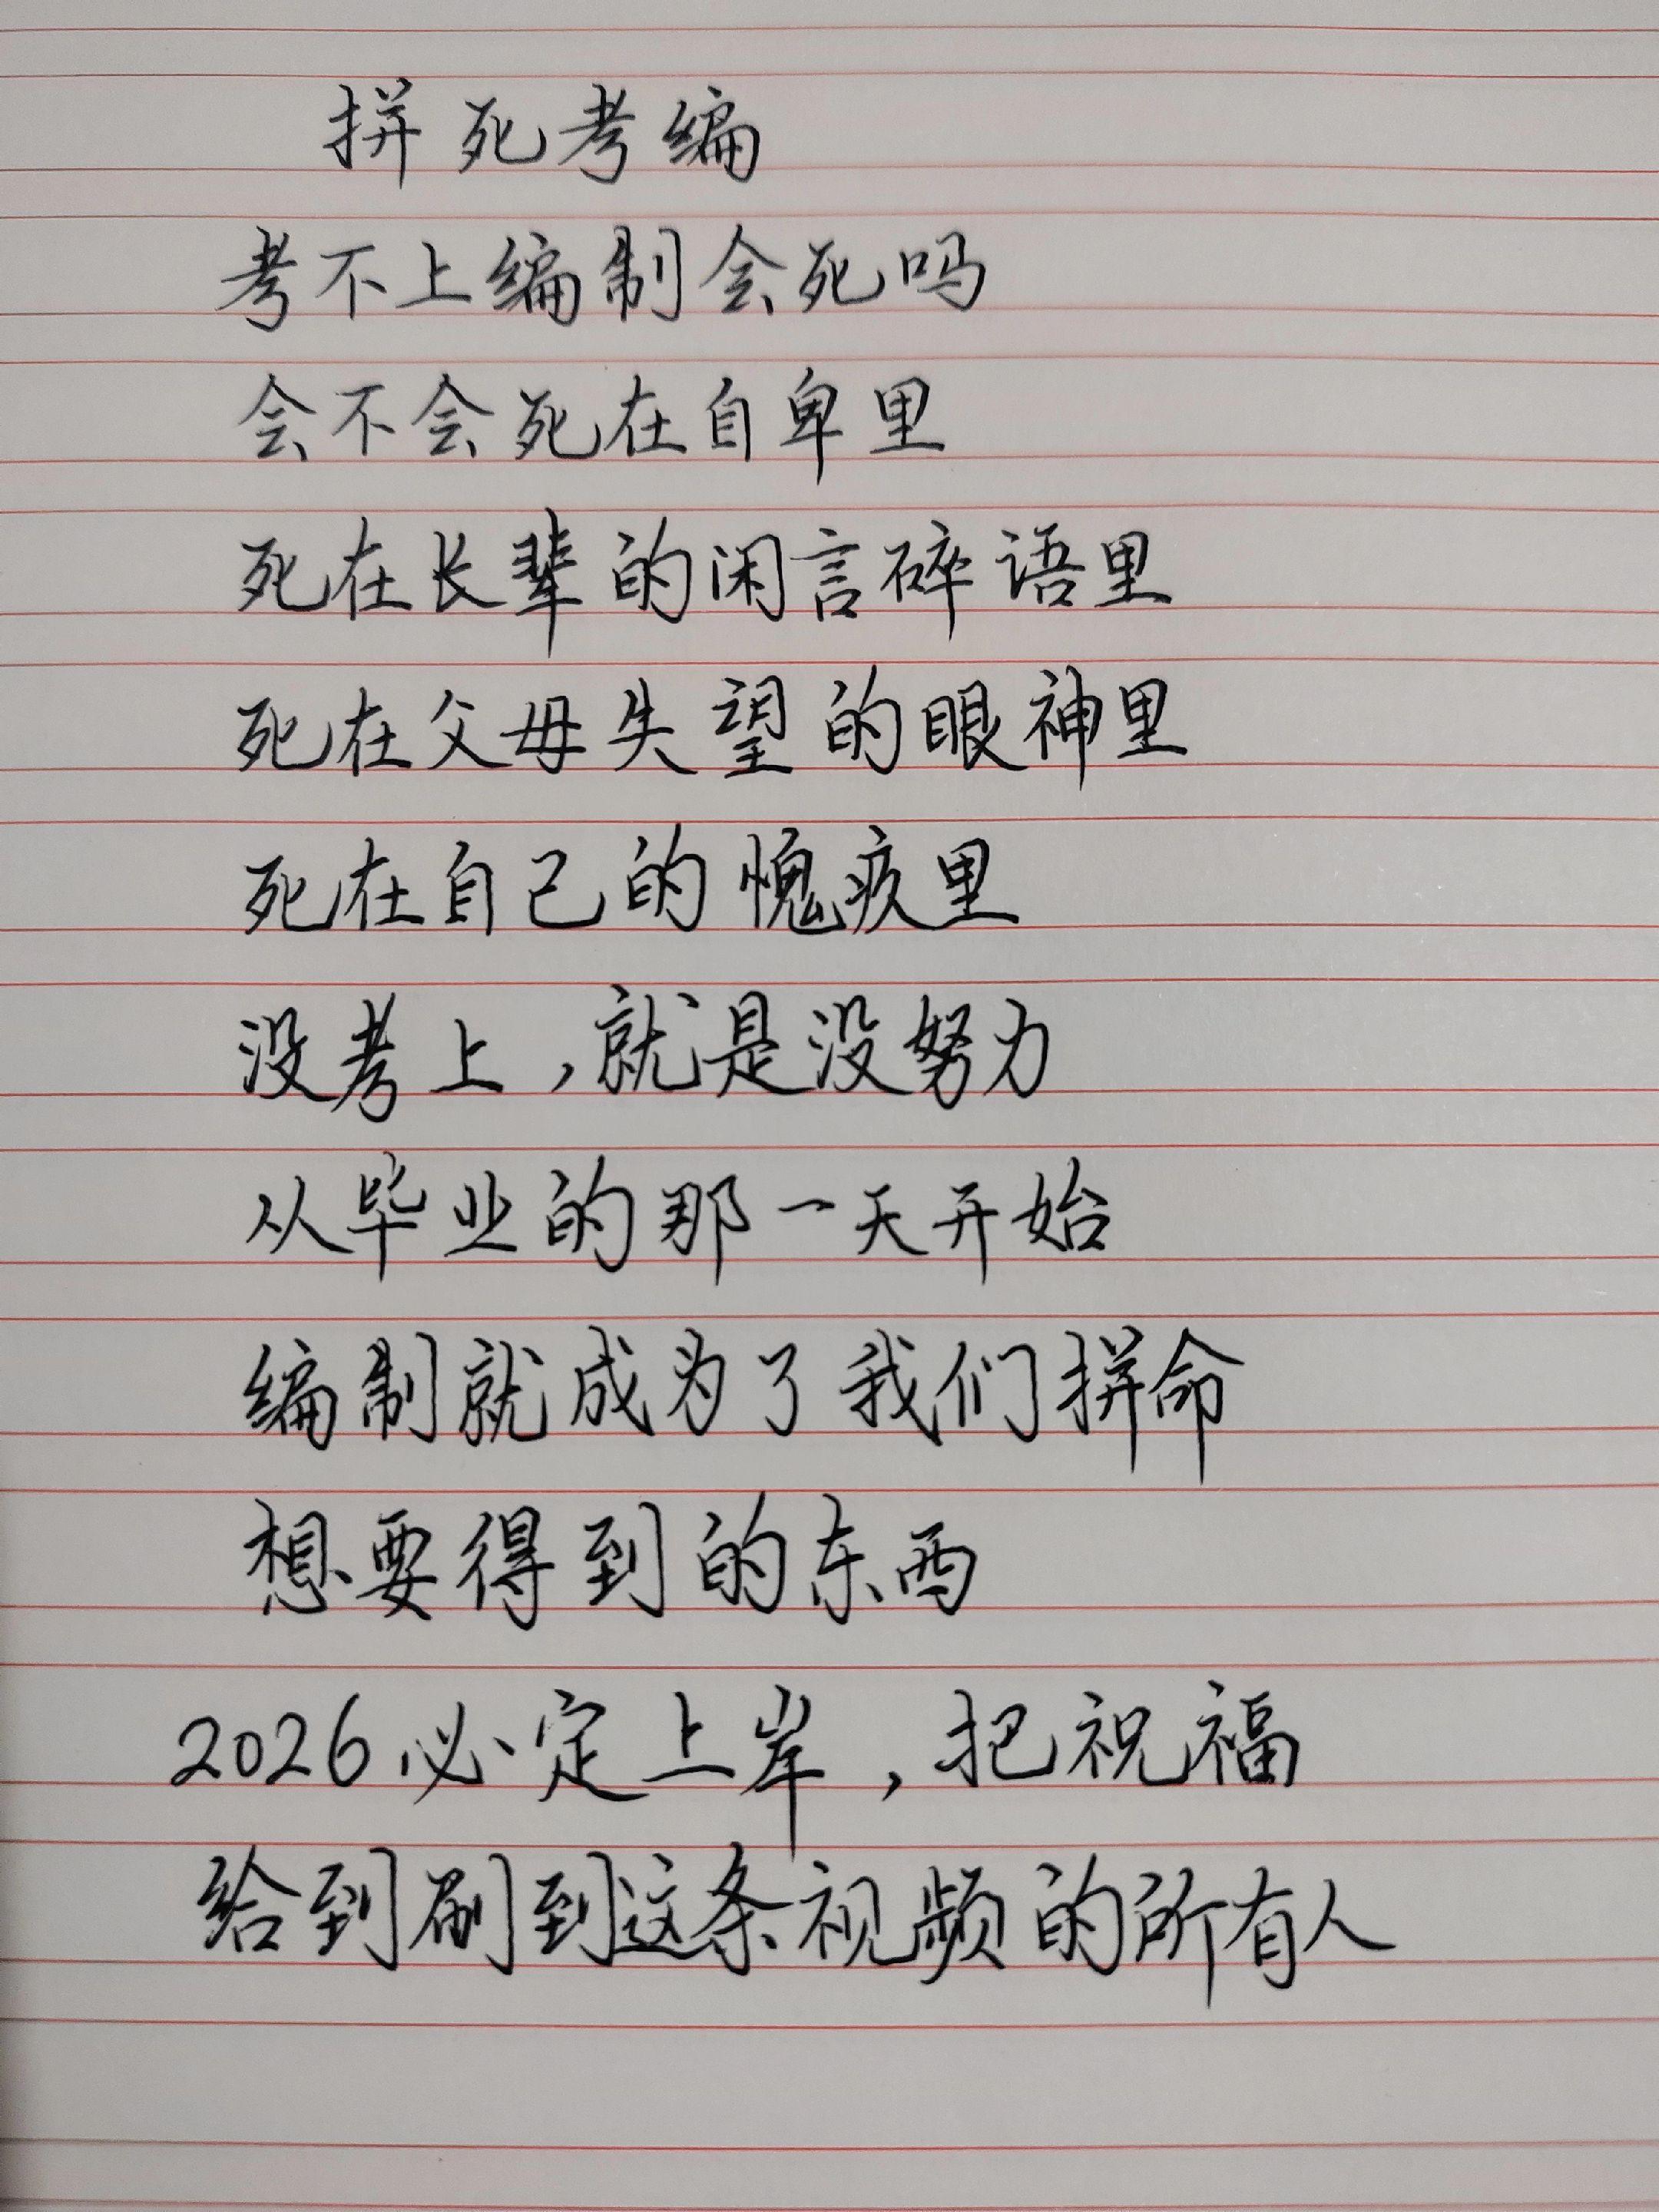 拼死考编
考不上编制会死吗
会不会死在自卑里
死在长辈的闲言碎语里
死在父母失望的眼神里
死在自己的愧疚里
没考上,就是没努力
从毕业的那一天开始
编制就成为了我们拼命
想要得到的东西
2026必定上岸,把祝福
给到刷到这条视频的所有人